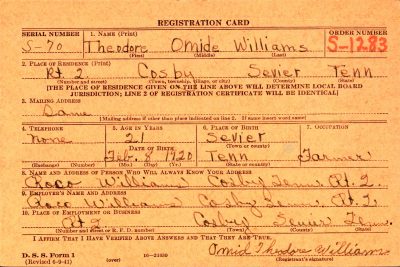 REGISTRATION CARD
SERIAL NUMBER 1. NAME (Print) ORDER NUMBER
S-70 Theodore Omide Williams S-1283
(First) (Middle) (Last)
2. PLACE OF RESIDENCE (Print)
Rt. 2. Cosby Sevier Tenn
(Number and street) (Town, township, village, or city) (County) (State)
[THE PLACE OF RESIDENCE GIVEN ON THE LINE ABOVE WILL DETERMINE LOCAL BOARD
JURISDICTION; LINE 2 OF REGISTRATION CERTIFICATE WILL BE IDENTICAL]
3. MAILING ADDRESS
Same
[Mailing address if other than place indicated on line 2. If same insert word same]
4. TELEPHONE 5. AGE IN YEARS 6. PLACE OF BIRTH 7. OCCUPATION
none 21 Sevier
DATE OF BIRTH (Town or county)
Feb. 8 1920 Tenn Farmer
(Exchange) (Number) (Mo.) (Day) (Yr.) (State or country)
8. NAME AND ADDRESS OF PERSON WHO WILL ALWAYS KNOW YOUR ADDRESS
Roco Williams Cosby Tenn Rt. 2.
9. EMPLOYER'S NAME AND ADDRESS
Roco Williams Cosby Tenn Rt. 2.
10. PLACE OF EMPLOYMENT OR BUSINESS
Rt 2 Cosby Sevier Tenn.
(Number and street or R. F. D. number) (Town) (County) (State)
I AFFIRM THAT I HAVE VERIFIED ABOVE ANSWERS AND THAT THEY ARE TRUE.
D. S. S. Form 1 Omid Theodore Williams
(Revised 6-9-41) (over) 16-21630 (Registrant's signature)